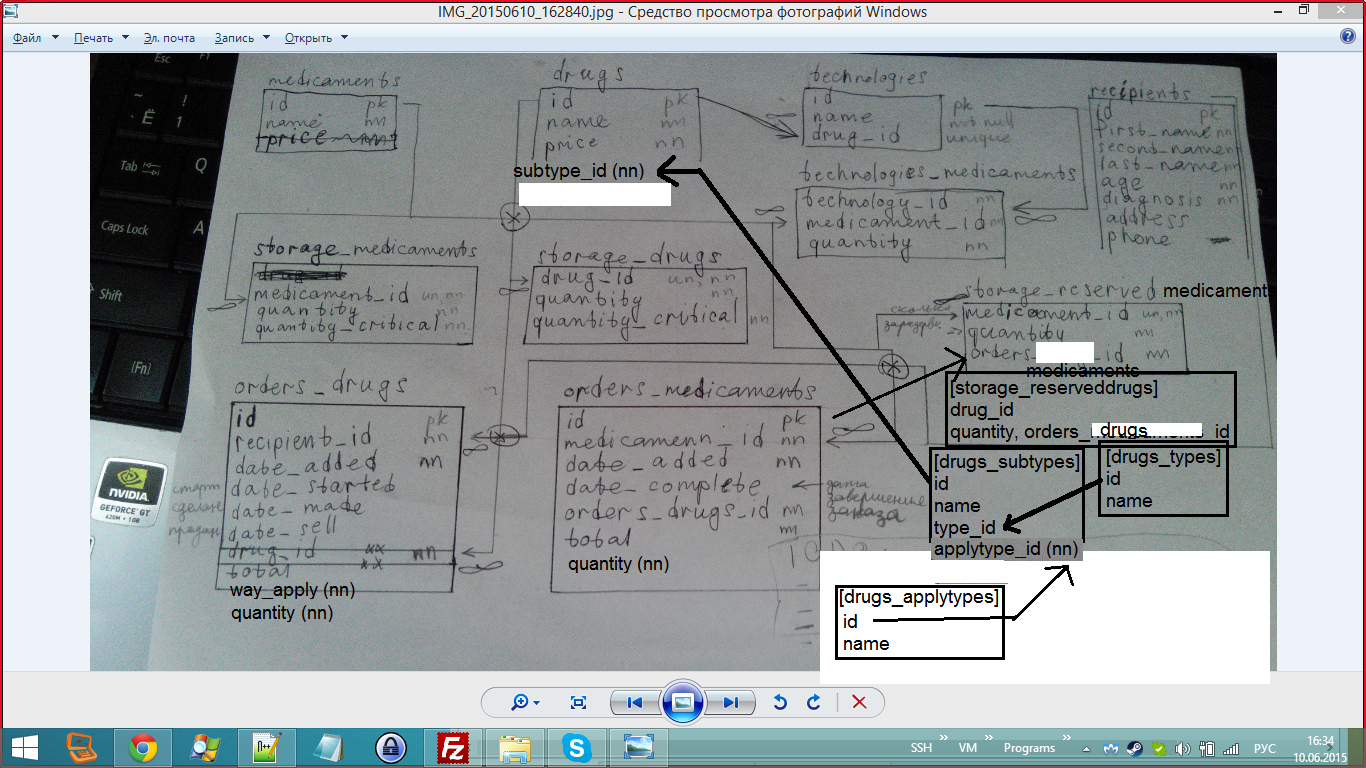 IMG_20150610_162840.jpg - Средство просмотра фотографий Windows
Файл Печать Эл. почта Запись Открыть
Esc
F1
~
Ё
!
1
Tab
Q
Caps Lock
A
Shift
[Fn]
NVIDIA
GEFORCE GT
620M • 1GB
medicaments
id pk
name nn
price nn
drugs
id pk
name nn
price nn
subtype_id (nn)
technologies
id pk
name not null
drug_id unique
recipients
id pk
first_name nn
second_name nn
last_name nn
age nn
diagnosis nn
address
phone
technologies_medicaments
technology_id nn
medicament_id nn
quantity nn
storage_medicaments
medicament_id un, nn
quantity nn
quantity_critical nn
storage_drugs
drug_id un, nn
quantity nn
quantity_critical nn
storage_reserved medicaments
medicament_id un, nn
quantity nn
orders_ _id nn
medicaments
[storage_reserveddrugs]
drug_id
quantity, orders_ drugs id
orders_drugs
id pk
recipient_id nn
date_added nn
date_started
date_made
date_sell
drug_id nn
total
way_apply (nn)
quantity (nn)
orders_medicaments
id pk
medicamenn_id nn
date_added nn
date_complete
orders_drugs_id nn
total nn
quantity (nn)
дата
завершения
заказа
[drugs_subtypes]
id
name
type_id
applytype_id (nn)
[drugs_types]
id
name
[drugs_applytypes]
id
name
SSH VM Programs РУС
16:34
10.06.2015